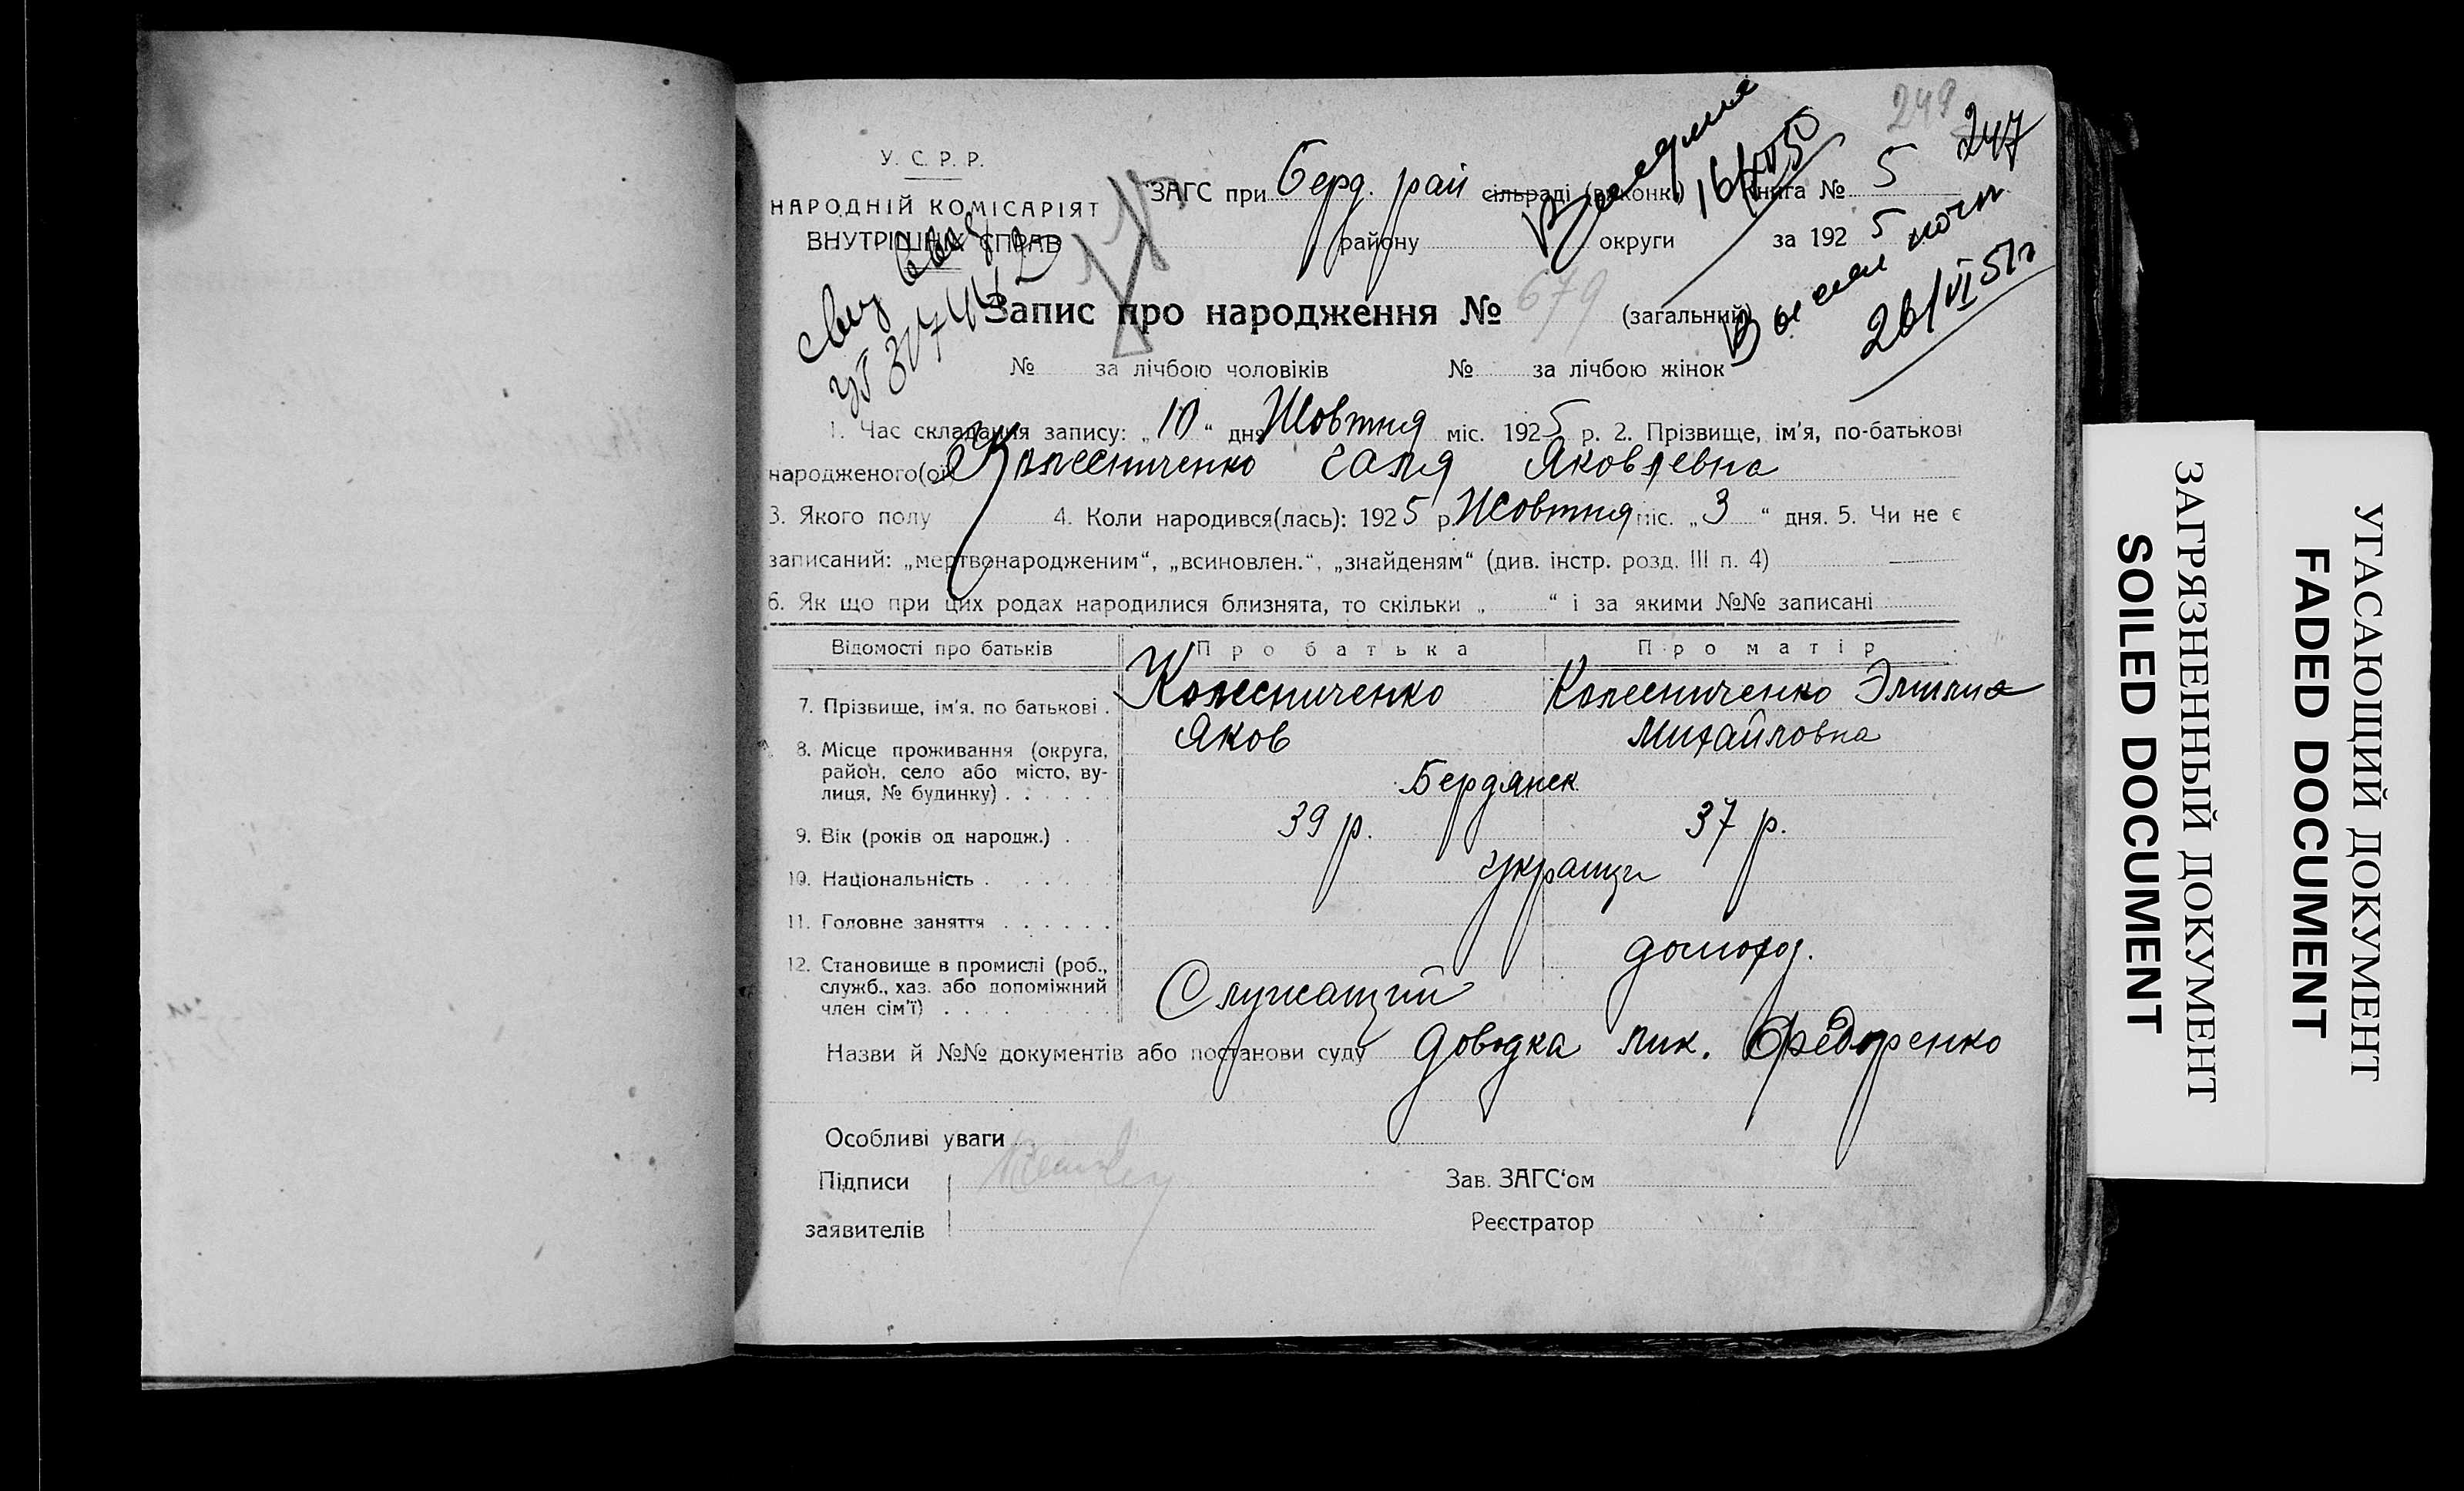 249
247
У. С. Р. Р.
НАРОДНІЙ КОМІСАРІЯТ
ВНУТРІШНІХ СПРАВ
ЗАГС при Берд. рай сільраді (виконк.) Книга № 5
району округи за 1925
16/XII 50
26/VI 51г
Запис про народження № 679 (загальний)
№ за лічбою чоловіків № за лічбою жінок
1. Час складання запису: „10“ дня Жовтня міс. 1925 р. 2. Прізвище, ім'я, по-батькові
народженого(ої) Колесниченко Галя Яковлевна
3. Якого полу 4. Коли народився(лась): 1925 р. Жовтня міс. „3“ дня. 5. Чи не є
записаний: „мертвонародженим“, „всиновлен.“, „знайденям“ (див. інстр. розд. III п. 4)
6. Як що при цих родах народилися близнята, то скільки „ “ і за якими №№ записані
Відомості про батьків Про батька Про матір
7. Прізвище, ім'я, по батькові . Колесниченко Яков Колесниченко Эмилия Михайловна
8. Місце проживання (округа, район, село або місто, вулиця, № будинку) . . . . . Бердянск
9. Вік (років од народж.) . 39 р. 37 р.
10. Національність . . . . . украинци
11. Головне заняття . . . . . .
12. Становище в промислі (роб., служб., хаз. або допоміжний член сім'ї) . . . . Служащий домохоз.
Назви й №№ документів або постанови суду довідка лик. Федоренко
Особливі уваги
Підписи Зав. ЗАГС'ом
заявителів Реєстратор
ЗАГРЯЗНЕННЫЙ ДОКУМЕНТ
SOILED DOCUMENT
УГАСАЮЩИЙ ДОКУМЕНТ
FADED DOCUMENT